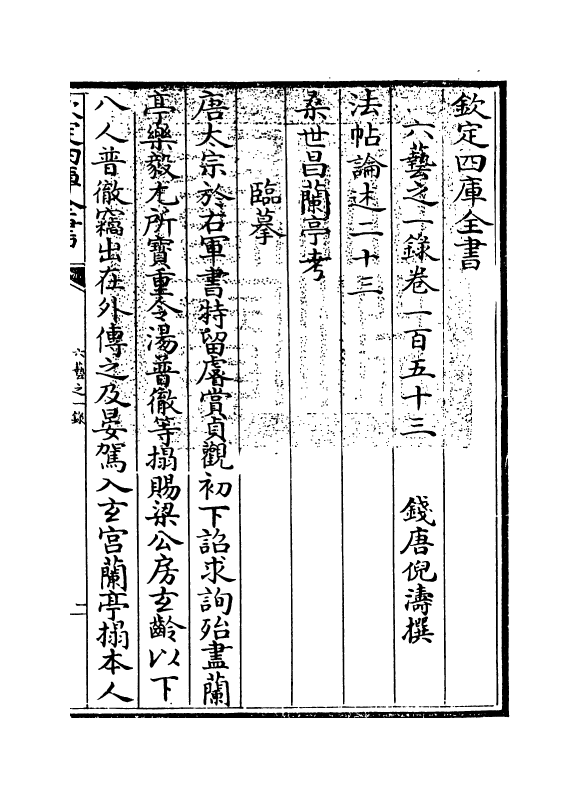 欽定四庫全書
六藝之一錄卷一百五十三　錢唐倪濤撰
法帖論述二十三
桑世昌蘭亭考
臨摹
唐太宗於右軍書特留睿賞貞觀初下詔求詢殆盡蘭
亭樂毅尤所寶重令湯普徹等搨賜梁公房玄齡以下
八人普徹竊出在外傳之及晏駕入玄宮蘭亭搨本人
欽定四庫全書
六藝之一錄
二